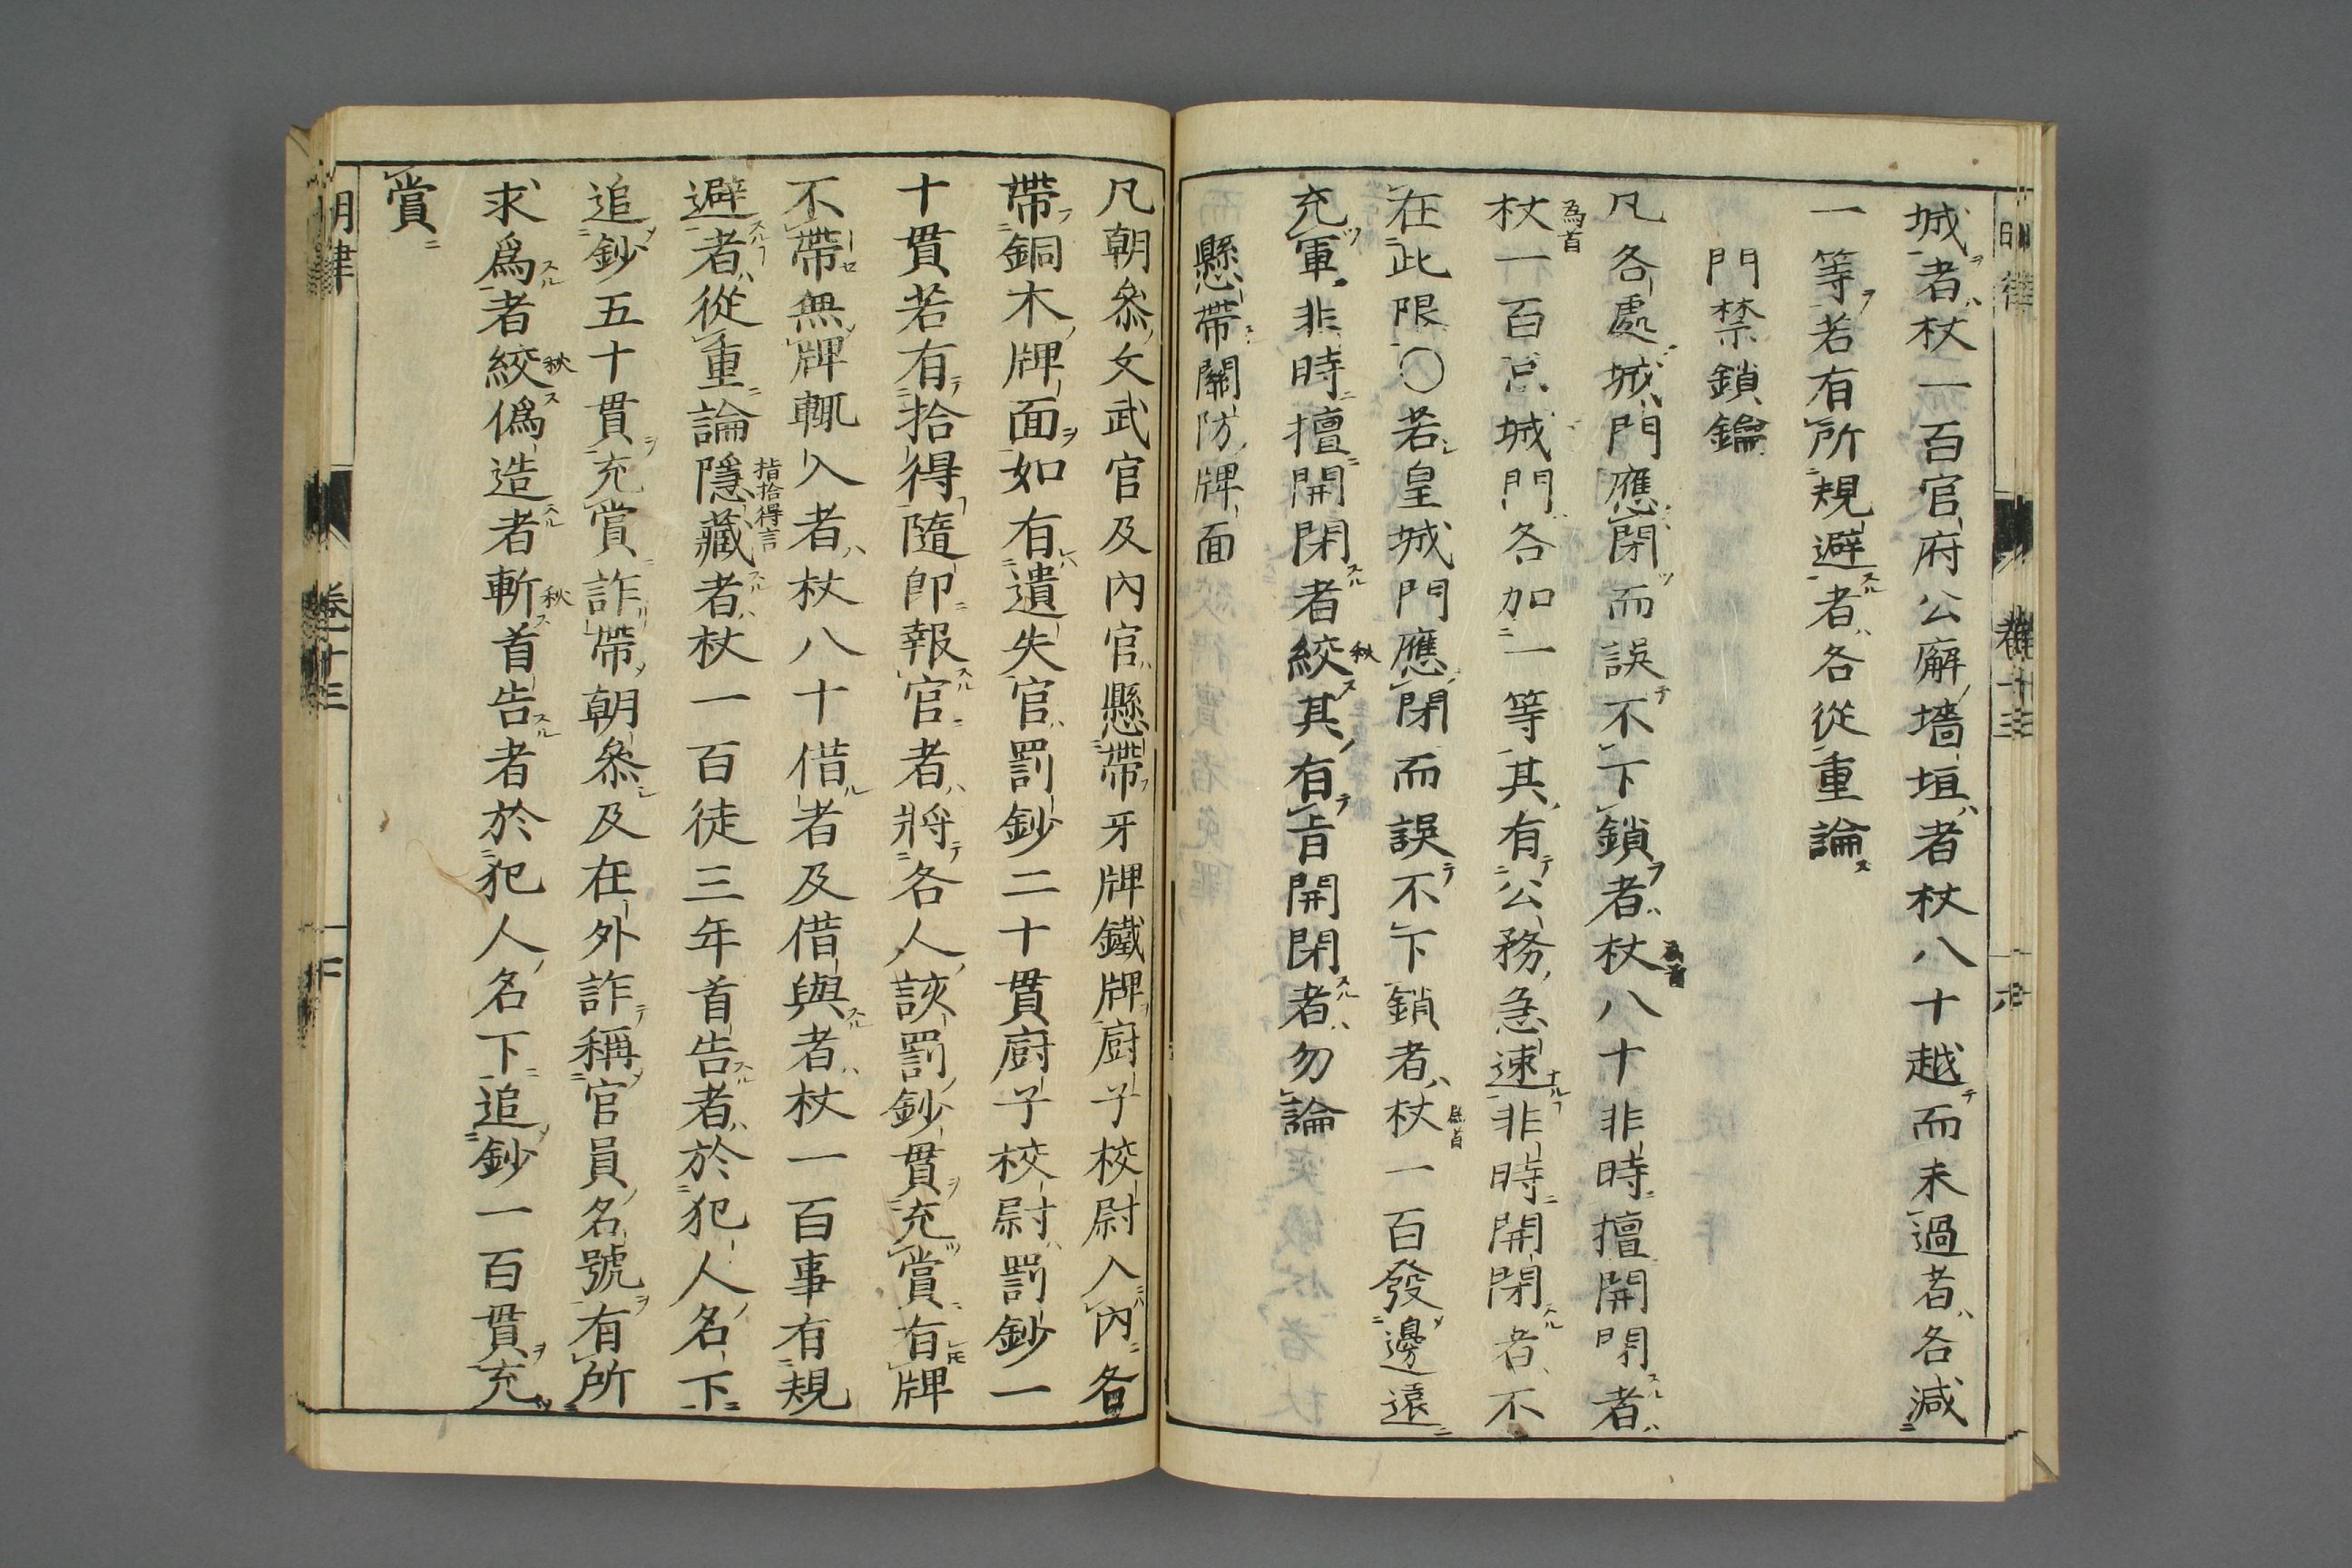 城者杖一百官府公廨墻垣者杖八十越而未過者各減
一等若有所規避者各從重論
門禁鎖鑰
凡各處城門應閉而誤不下鎖者杖八十非時擅開閉者
杖一百京城門各加一等其有公務急速非時開閉者不
在此限〇若皇城門應閉而誤不下鎖者杖一百發邊遠
充軍非時擅開閉者絞其有旨開閉者勿論
懸帶關防牌面
凡朝參文武官及內官懸帶牙牌鐵牌廚子校尉入內各
帶銅木牌面如有遺失官罰鈔二十貫廚子校尉罰鈔一
十貫若有拾得隨即報官者將各人該罰鈔貫充賞有牌
不帶無牌輒入者杖八十借者及借與者杖一百事有規
避者從重論隱藏者杖一百徒三年首告者於犯人名下
追鈔五十貫充賞詐帶朝參及在外詐稱官員名號有所
求爲者絞僞造者斬首告者於犯人名下追鈔一百貫充
賞